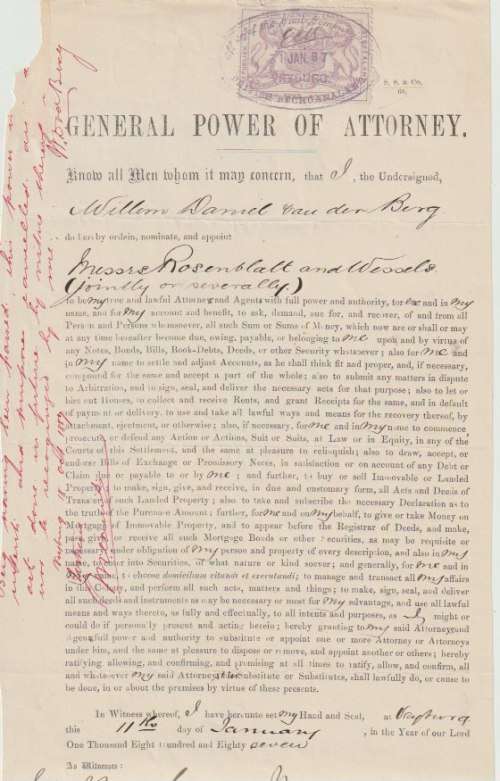 JAN. 87
BRITISH BECHUANALAND
S. S. & Co.
GENERAL POWER OF ATTORNEY.
Know all Men whom it may concern, that I, the Undersigned,
Willem Daniel van den Berg
do hereby ordein, nominate, and appoint
Messrs Rosenblatt and Wessels
(jointly or severally)
to be my true and lawful Attorney and Agents with full power and authority, for me and in my
name, and for my account and benefit, to ask, demand, sue for, and recover, of and from all
Person and Persons whomsoever, all such Sum or Sums of Money, which now are or shall or may
at any time hereafter become due, owing, payable, or belonging to me upon and by virtue of
any Notes, Bonds, Bills, Book-Debts, Deeds, or other Security whatsoever; also for me and
in my name to settle and adjust Accounts, as he shall think fit and proper, and, if necessary,
compound for the same and accept a part of the whole; also to submit any matters in dispute
to Arbitration, and to sign, seal, and deliver the necessary acts for that purpose; also to let or
hire out Houses, to collect and receive Rents, and grant Receipts for the same, and in default
of payment or delivery, to use and take all lawful ways and means for the recovery thereof, by
Attachment, ejectment, or otherwise; also, if necessary, for me and in my name to commence
prosecute or defend any Action or Actions, Suit or Suits, at Law or in Equity, in any of the
Courts of this Settlement, and the same at pleasure to relinquish; also to draw, accept, or
endorse Bills of Exchange or Promissory Notes, in satisfaction or on account of any Debt or
Claim due or payable to or by me; and further, to buy or sell Immovable or Landed
Property, to make, sign, give, and receive, in due and customary form, all Acts and Deeds of
Transfer of such Landed Property; also to take and subscribe the necessary Declaration as to
the truth of the Purchase Amount; further, for me and on my behalf, to give or take Money on
Mortgage of Immovable Property, and to appear before the Registrar of Deeds, and make,
pass, give, or receive all such Mortgage Bonds or other Securities, as may be requisite or
necessary under obligation of my person and property of every description, and also in my
name, to enter into Securities, of what nature or kind soever; and generally, for me and in
name, to choose domicilium citandi et executandi; to manage and transact all my affairs
in this Colony, and perform all such acts, matters, and things; to make, sign, seal, and deliver
all such deeds and instruments as may be necessary or meet for my advantage, and use all lawful
means and ways thereto, as fully and effectually, to all intents and purposes, as I might or
could do if personally present and acting herein; hereby granting to my said Attorney and
Agents full power and authority to substitute or appoint one or more Attorney or Attorneys
under him, and the same at pleasure to dispose or remove, and appoint another or others; hereby
ratifying, allowing, and confirming, and promising at all times to ratify, allow, and confirm, all
and whatsoever my said Attorney or Substitute or Substitutes, shall lawfully do, or cause to
be done, in or about the premises by virtue of these presents.
In Witness whereof, I have hereunto set my Hand and Seal, at
this 11th day of January, in the Year of our Lord
One Thousand Eight Hundred and Eighty seven
As Witnesses: